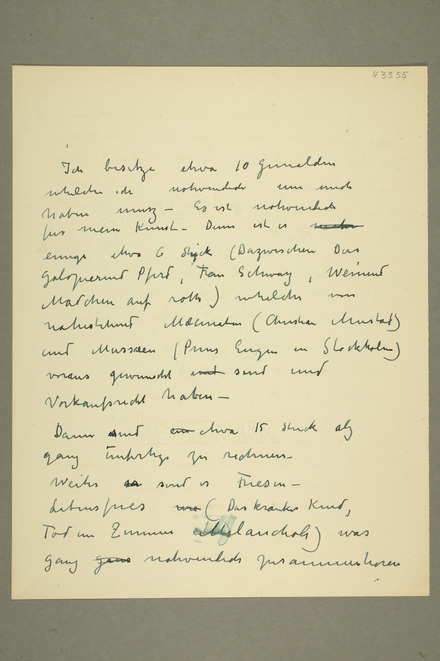 N 3355
Ich besitze etwa 10 Gemälden
whelche ich notwendich um mich
haben musz – Es ist notwendich
für mein Kunst – Dann ist es
einige etwa 6 Stück (Dazwischen Das
galopirend Pferd, Frau Schwarz, Weinend
Mädchen auf roth) whelche von
nahestehend Mäcenaten (Christian Mustad)
und Mussæen (Prins Eugen in Stockholm)
voraus gewunscht und sind und
Vorkaufsrecht haben –
Dann sind ein etwa 15 Stuck als
ganz unfertige zu rechnen –
Weiter sind es Friesen –
Lebensfries (Das kranke Kind,
Tod im Zimmer Melancholi) was
ganz notwendich zusammenhören